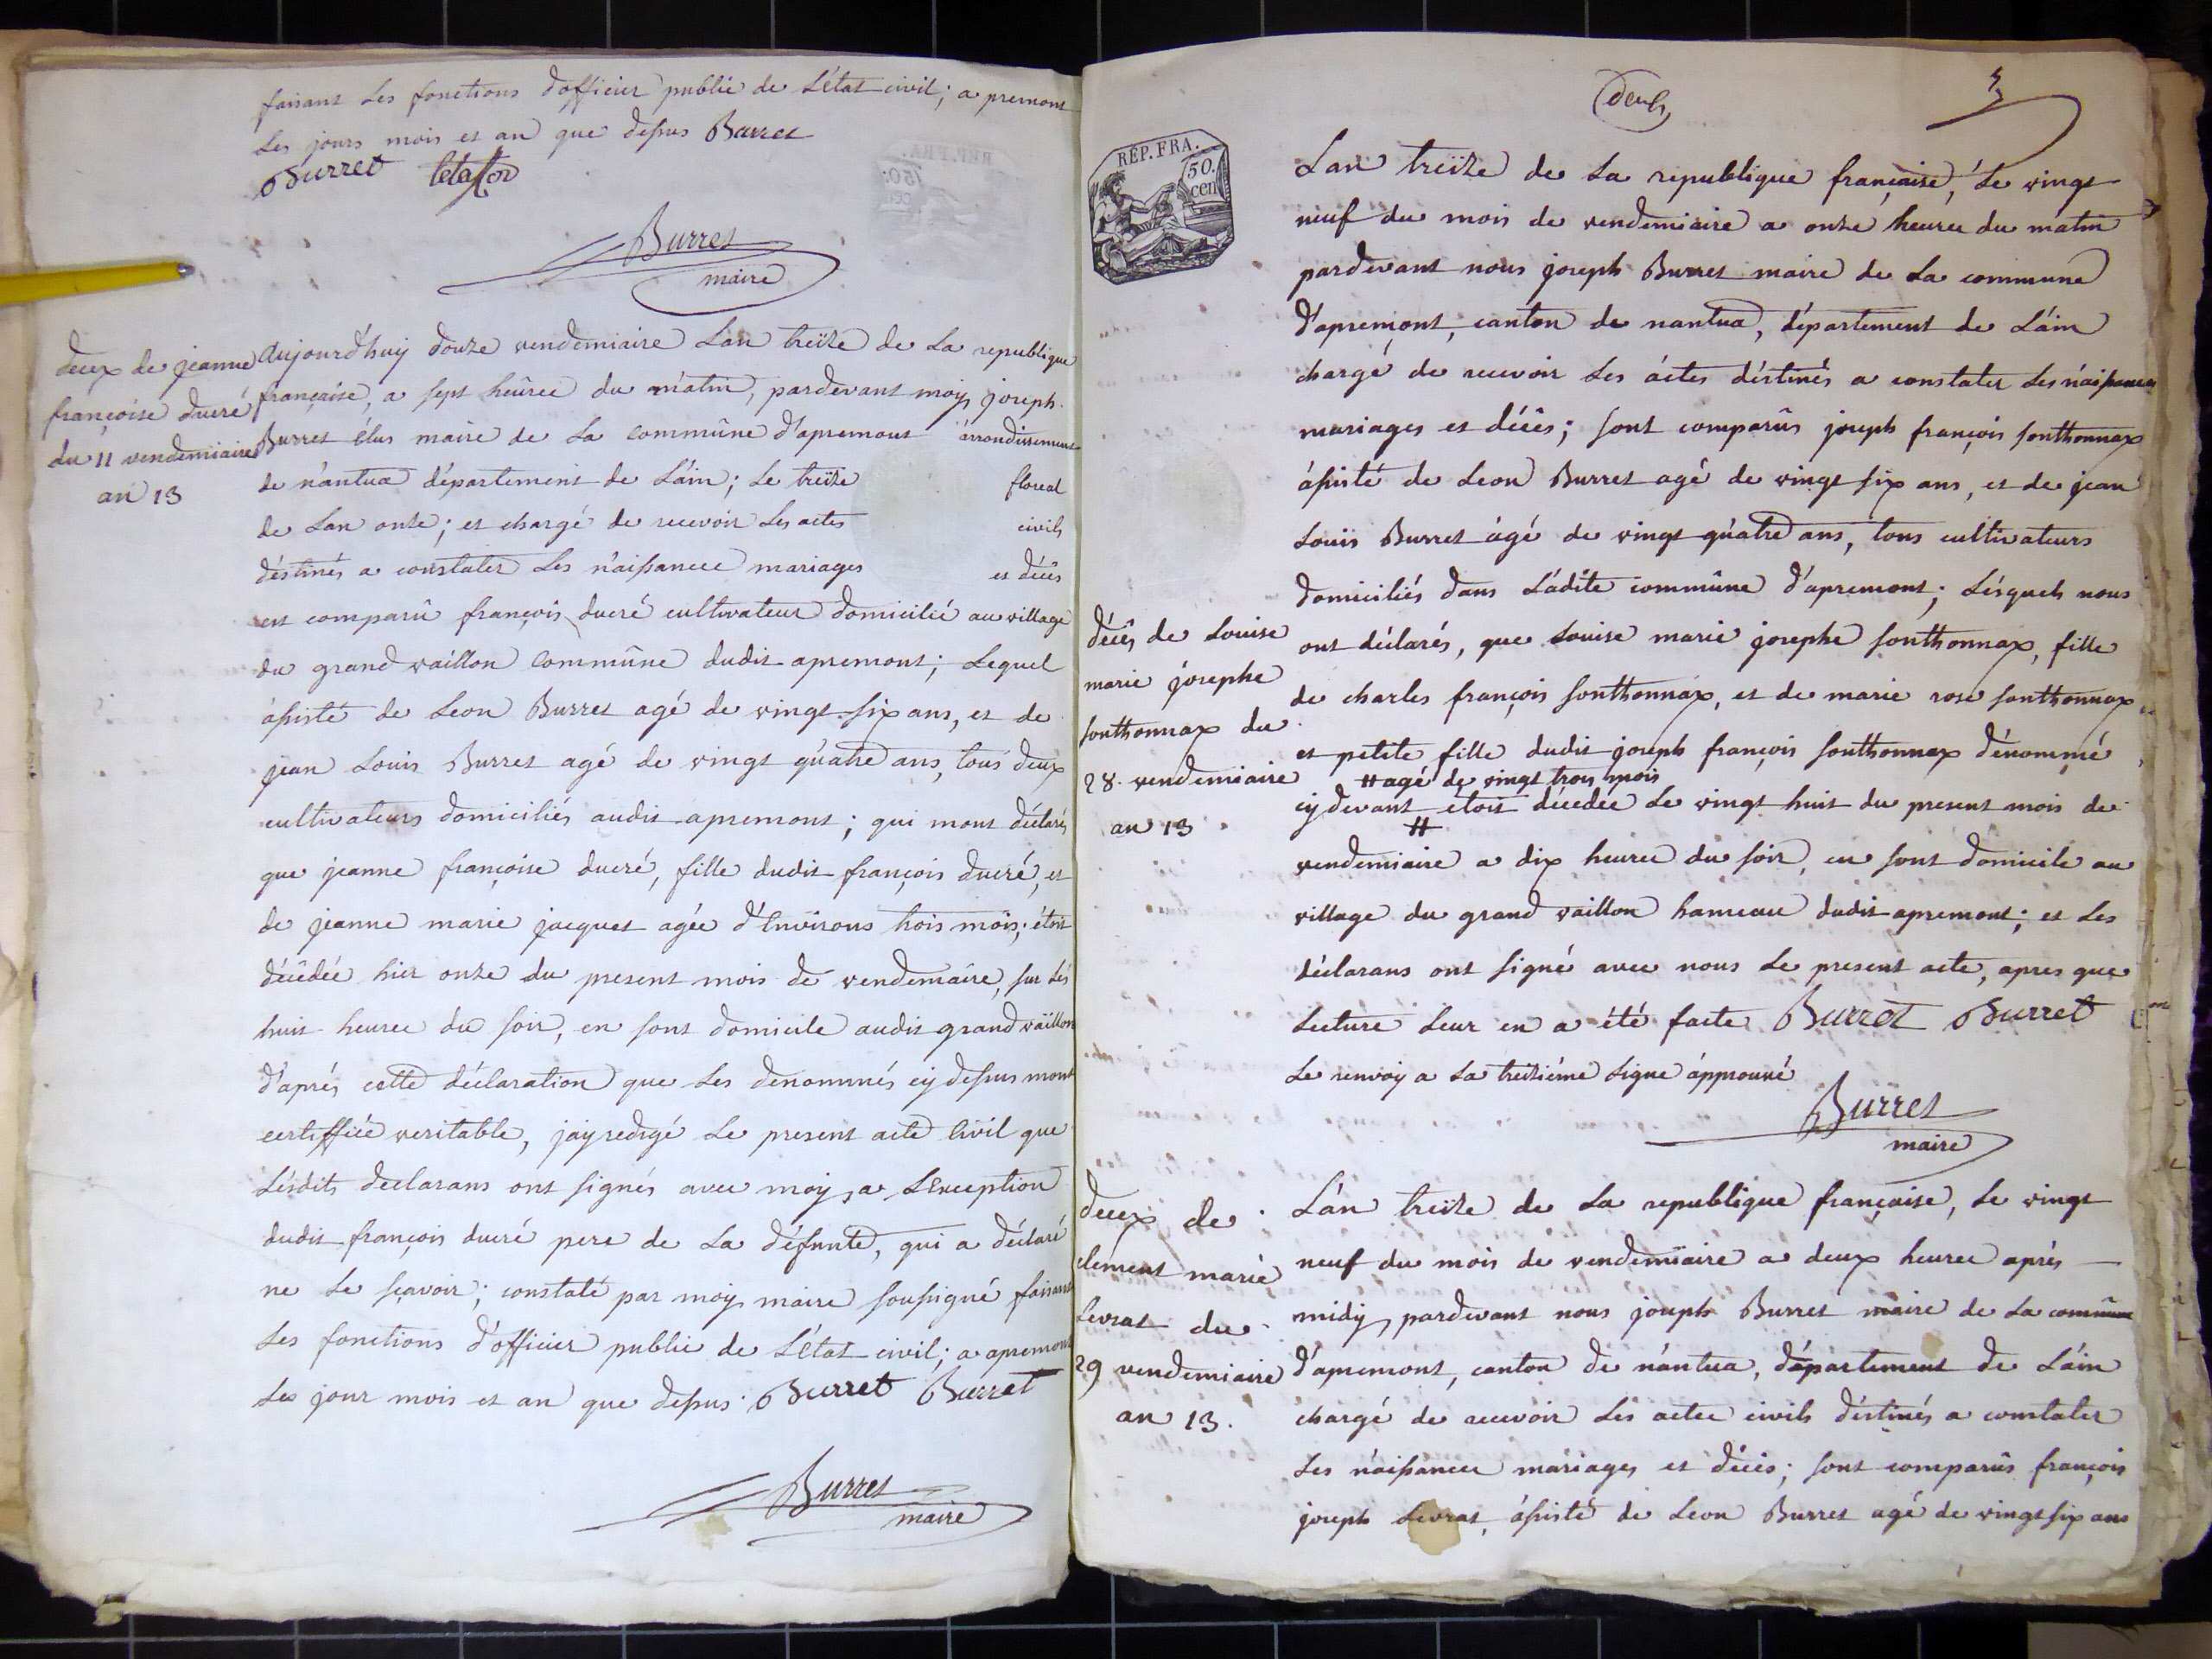 faisant les fonctions d'officier public de l'état civil; a premont
les jours mois et an que dessus Burret
Burret
Burret
maire
deces de jeanne
françoise ducré
du 11 vendemiaire
an 13
Aujourd'huy douze vendemiaire l'an treize de la republique
française, a sept heûres du matin, pardevant moy, joseph
Burret élus maire de la commûne d'apremont arrondissement
de nántua département de l'áin; le treize floreal
de l'an onze; et chargé de recevoir les actes civils
déstinés a constater les náissances mariages et décés
est comparû françois ducré cultivateur domicilié au village
du grand vaillon commûne dudit apremont; lequel
ássisté de Leon Burret agé de vingt six ans, et de
jean Louis Burret agé de vingt quatre ans, tous deux
cultivateurs domiciliés audit apremont; qui mont déclarés
que jeanne françoise ducré, fille dudit françois ducré, et
de jeanne marie jacquet agée d'environs trois mois; étoit
décédée hier onze du present mois de vendemaire, sur les
huit heures du soir, en sont domicile audit grand vaillon
d'aprés cette déclaration que les denommés cy dessus mont
certiffiée veritable, jay redigé le present acte civil que
lésdits declarans ont signés avec moy, a l'exception
dudit françois ducré pere de la défunte, qui a déclaré
ne le sçavoir; constaté par moy maire soussigné faisant
les fonctions d'officier public de l'état civil; a apremont
les jour mois et an que dessus. Burret Burret
Burret
maire
deux
REP. FRA.
50.
cen
L'an treize de la republique française, le vingt
neuf du mois de vendemiaire a onze heures du matin
pardevant nous joseph Burret maire de la commune
d'apremont, canton de nantua, département de l'áin
chargé de recevoir les áctes déstinés a constater les naissances
mariages et décés; sont comparûs joseph françois sonthonnax
ássisté de Leon Burret agé de vingt six ans, et de jean
Louis Burret ágé de vingt quatre ans, tous cultivateurs
domiciliés dans ladite commûne d'apremont; lésquels nous
décés de Louise
marie josephe
sonthonnax du
28. vendemiaire
an 13
ont déclarés, que Louise marie josephe sonthonnax, fille
de charles françois sonthonnax, et de marie rose sonthonnax,
et petite fille dudit joseph françois sonthonnax dénommé
# agé de vingt trois mois
cy devant étoit décedée le vingt huit du present mois de
#
vendemiaire a dix heures du soir, en sont domicile au
village du grand vaillon hameau dudit apremont; et les
déclarans ont signé avec nous le present acte, apres que
lecture leur en a été faite Burret Burret
Le renvoy a la treiziéme ligne ápprouvé
Burret
maire
deces de
clement marie
levrat du
29 vendemiaire
an 13.
L'an treize de la republique française, le vingt
neuf du mois de vendemiaire a deux heures aprés
midy, pardevant nous joseph Burret maire de la commûne
d'apremont, canton de nántua, département de l'áin
chargé de recevoir les actes civils déstinés a constater
les náissances mariages et décés; sont comparûs françois
joseph Levrat, ássisté de Leon Burret agé de vingt six ans